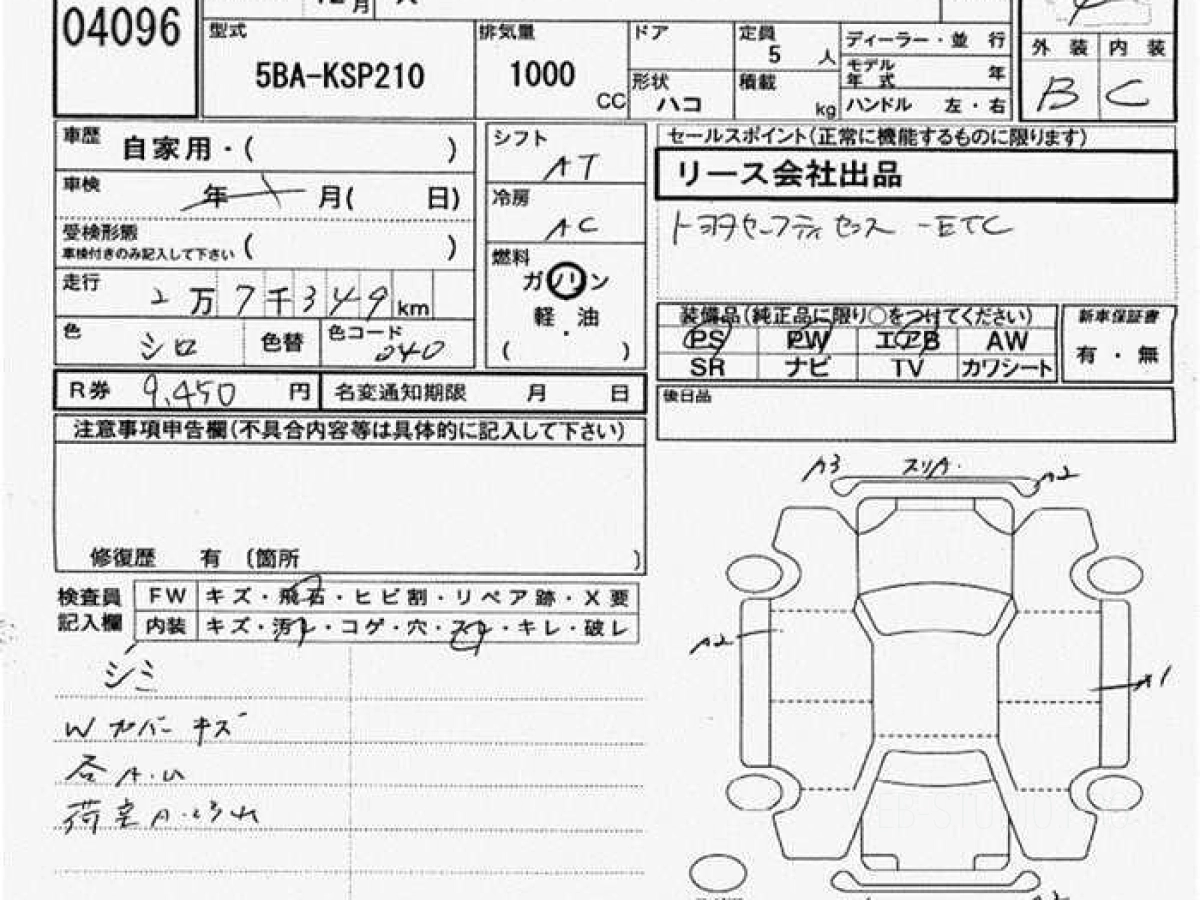 04096
月
型式
5BA-KSP210
排気量
1000
CC
ドア
形状
ハコ
定員
5 人
積載
kg
ディーラー・並 行
モデル年式 年
ハンドル 左・右
外 装 内 装
B C
車歴 自家用・( )
車検 年 月( 日)
受検形態
車検付きのみ記入して下さい ( )
走行 2万7千349km
色 シロ 色替 色コード 040
シフト
AT
冷房
AC
燃料
ガソリン
軽・油
( )
セールスポイント(正常に機能するものに限ります)
リース会社出品
トヨタセーフティセンス -ETC
装備品(純正品に限り○をつけてください)
PS PW エアB AW
SR ナビ TV カワシート
新車保証書
有・無
後日品
R券 9,450 円 名変通知期限 月 日
注意事項申告欄(不具合内容等は具体的に記入して下さい)
修復歴 有 (箇所 )
検査員記入欄
FW キズ・飛石・ヒビ割・リペア跡・X要
内装 キズ・汚レ・コゲ・穴・スレ・キレ・破レ
シミ
Wカバーキズ
各A.U
荷室A.よごれ
A3 スリA. A2
A2
A1